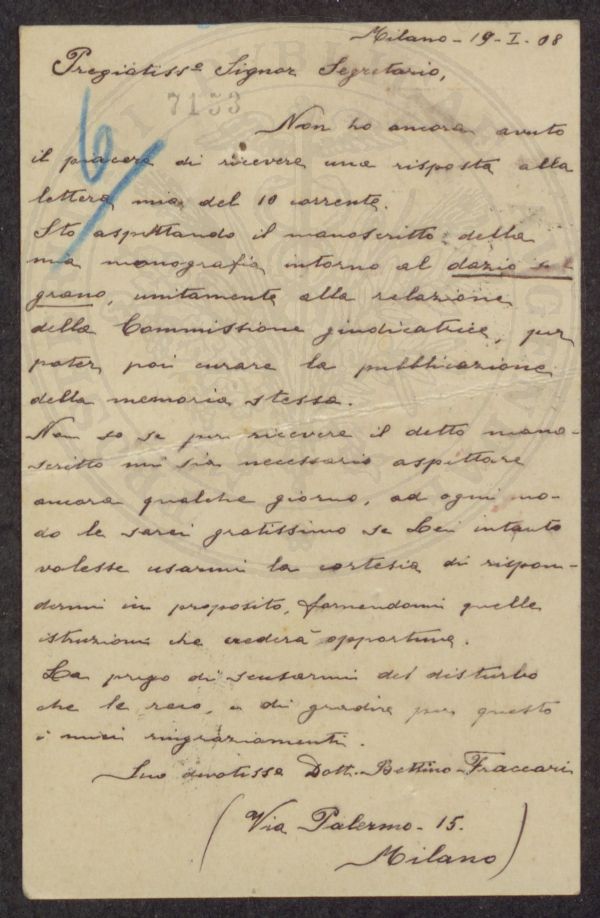 Milano - 19 - I. 08
Pregiatiss° Signor Segretario,
7153
6/
Non ho ancora avuto
il piacere di ricevere una risposta alla
lettera mia del 10 corrente.
Sto aspettando il manoscritto della
mia monografia intorno al dazio sul
grano, unitamente alla relazione
della Commissione giudicatrice, per
poter poi curare la pubblicazione
della memoria stessa.
Non so se per ricevere il detto mano-
scritto mi sia necessario aspettare
ancora qualche giorno, ad ogni mo-
do le sarei gratissimo se Lei intanto
volesse usarmi la cortesia di rispon-
dermi in proposito, fornendomi quelle
istruzioni che crederà opportune.
La prego di scusarmi del disturbo
che le reco, e di gradire per questo
i miei ringraziamenti.
Suo devotissº Dott. Bettino Fraccari
(Via Palermo - 15.
Milano)